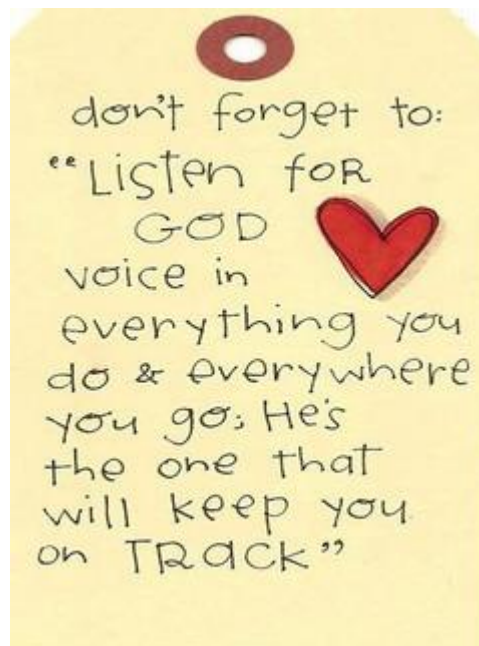 don't forget to:
"Listen foR
GOD
voice in
everything you
do & everywhere
you go; He's
the one that
will keep you
on TRACK"